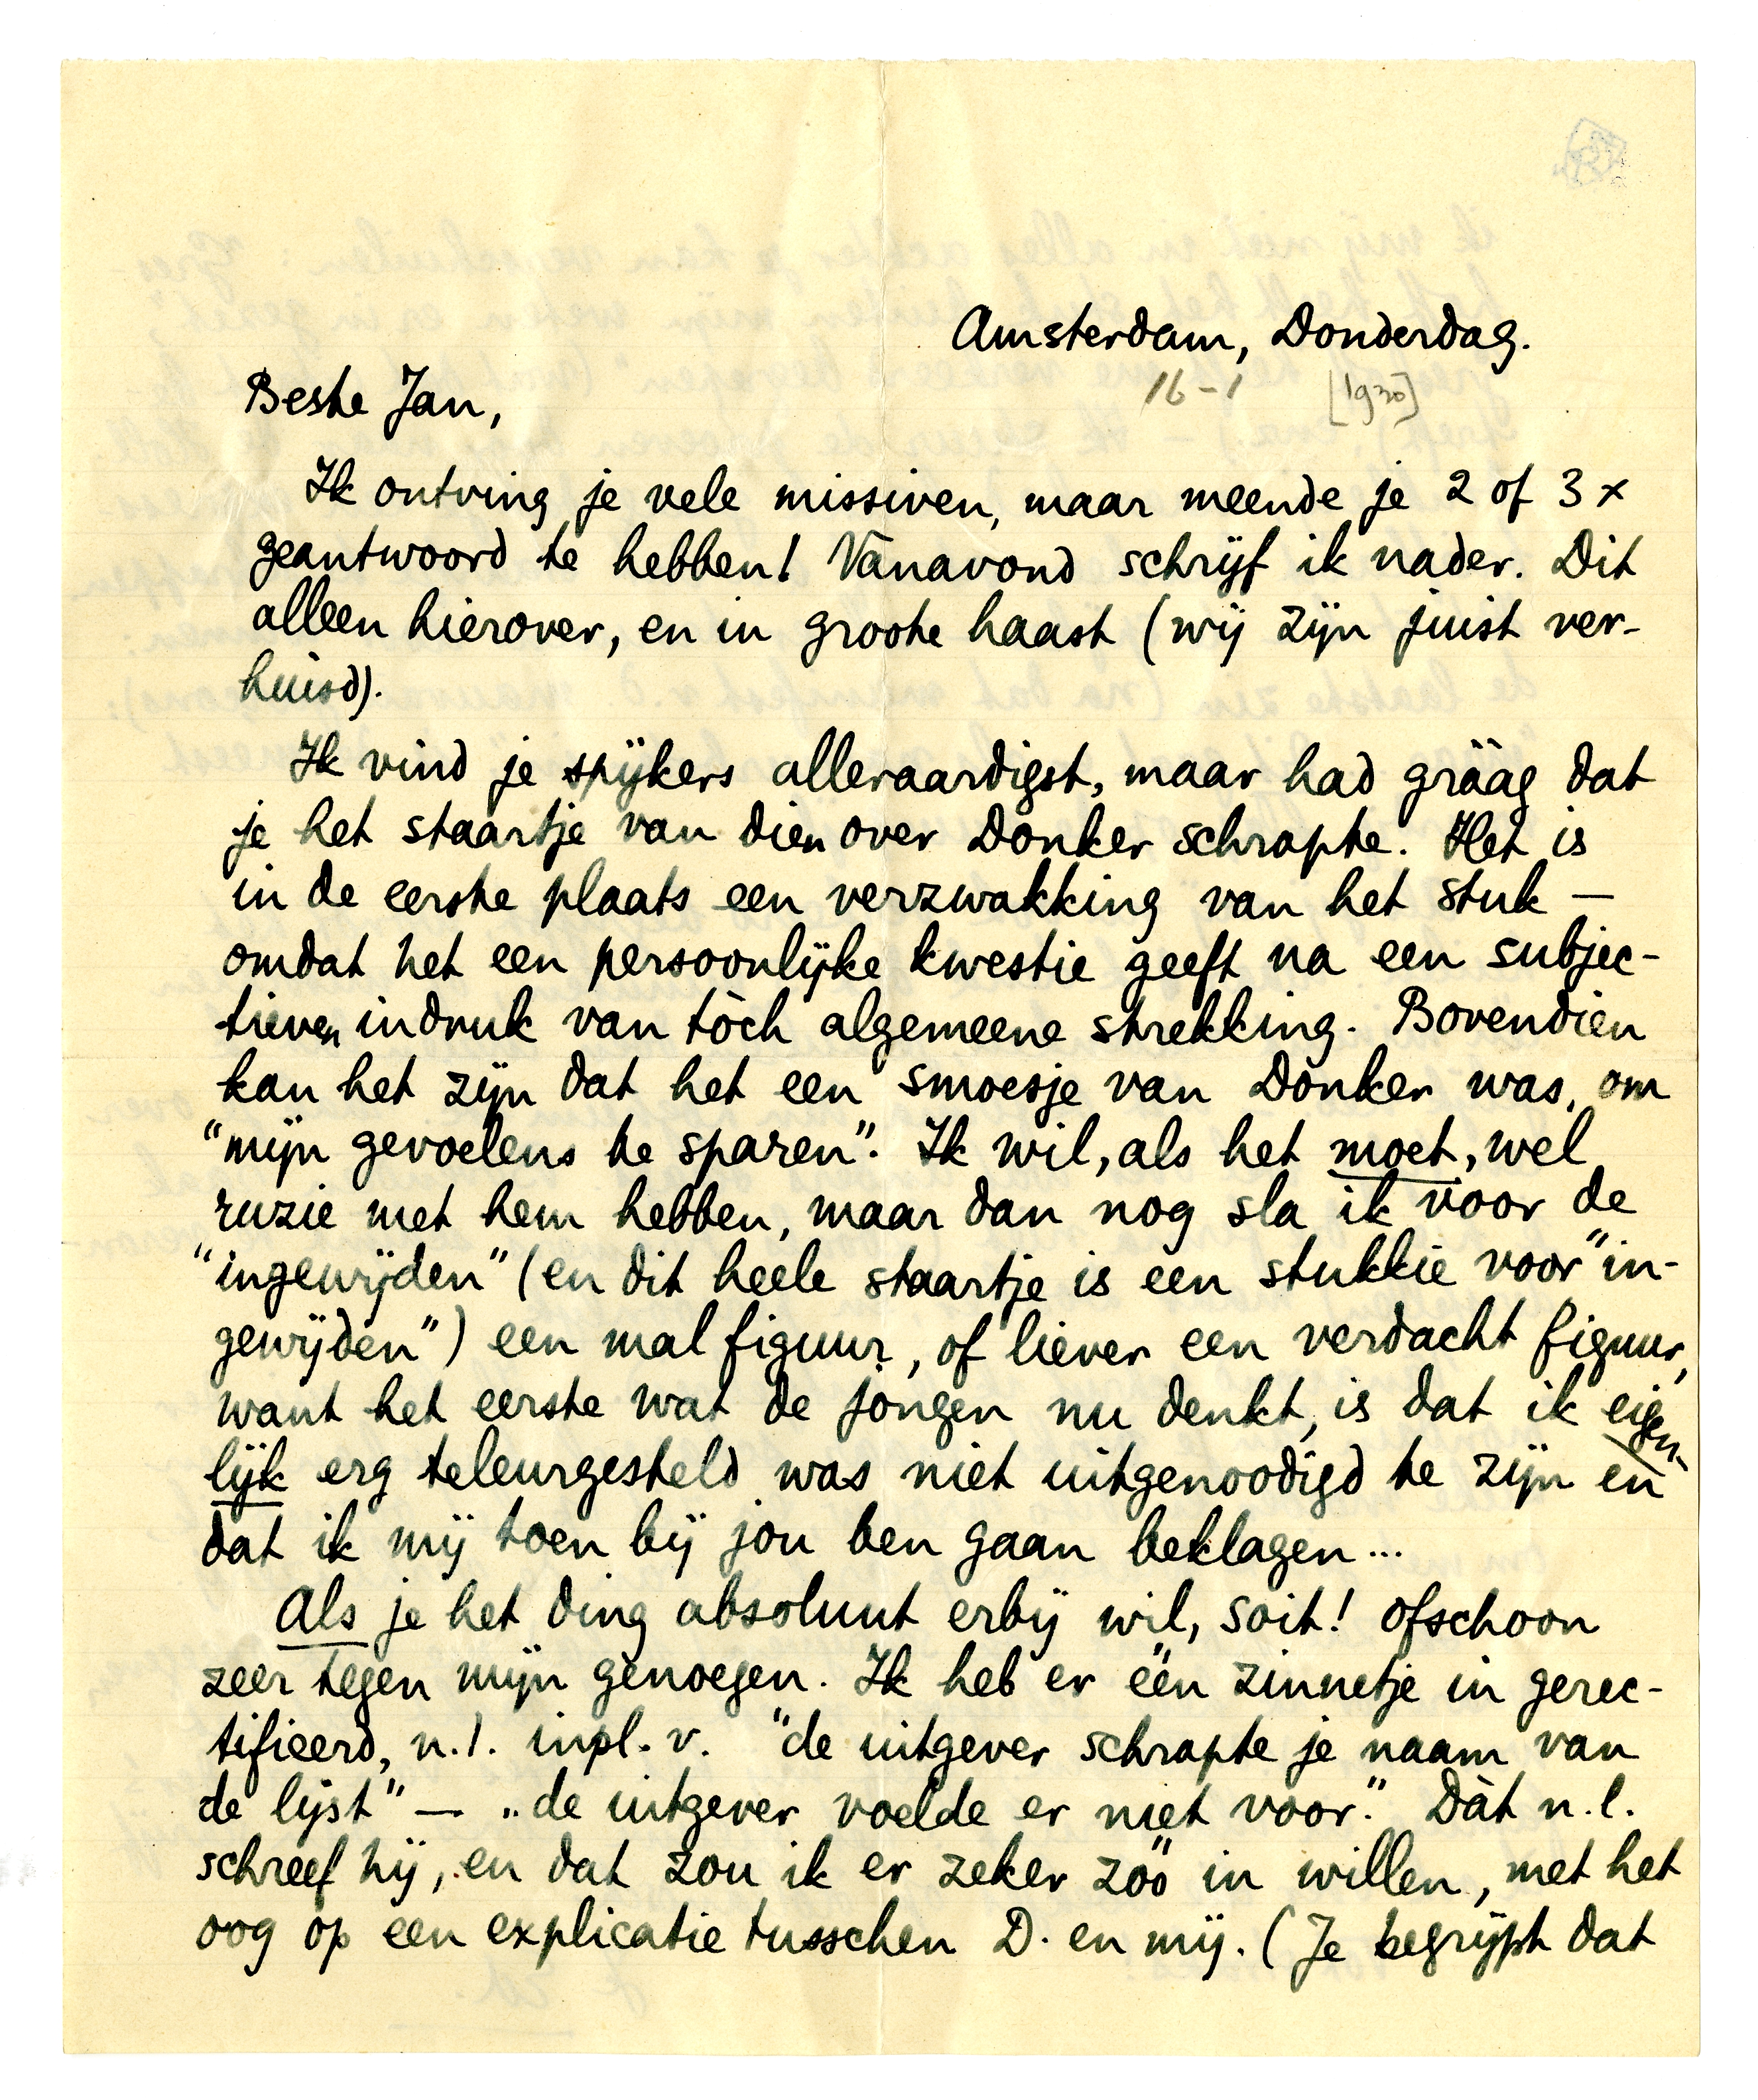 Amsterdam, Donderdag.
16-1 [1930]
Beste Jan,
Ik ontving je vele missiven, maar meende je 2 of 3 x
geantwoord te hebben! Vanavond schrijf ik nader. Dit
alleen hierover, en in groote haast (wij zijn juist ver-
huisd).
Ik vind je spijkers alleraardigst, maar had gráág dat
je het staartje van dien over Donker schrapte. Het is
in de eerste plaats een verzwakking van het stuk —
omdat het een persoonlijke kwestie geeft na een subjec-
tieven indruk van tòch algemeene strekking. Bovendien
kan het zijn dat het een smoesje van Donker was, om
"mijn gevoelens te sparen". Ik wil, als het moet, wel
ruzie met hem hebben, maar dan nog sla ik voor de
"ingewijden" (en dit heele staartje is een stukkie voor "in-
gewijden") een mal figuur, of liever een verdacht figuur,
want het eerste wat de jongen nu denkt, is dat ik eigen-
lijk erg teleurgesteld was niet uitgenoodigd te zijn en
dat ik mij toen bij jou ben gaan beklagen...
Als je het ding absoluut erbij wil, soit! ofschoon
zeer tegen mijn genoegen. Ik heb er één zinnetje in gerec-
tifieerd, n.l. inpl. v. "de uitgever schrapte je naam van
de lijst" — „de uitgever voelde er niet voor." Dàt n.l.
schreef hij, en dat zou ik er zeker zóó in willen, met het
oog op een explicatie tusschen D. en mij. (Je begrijpt dat